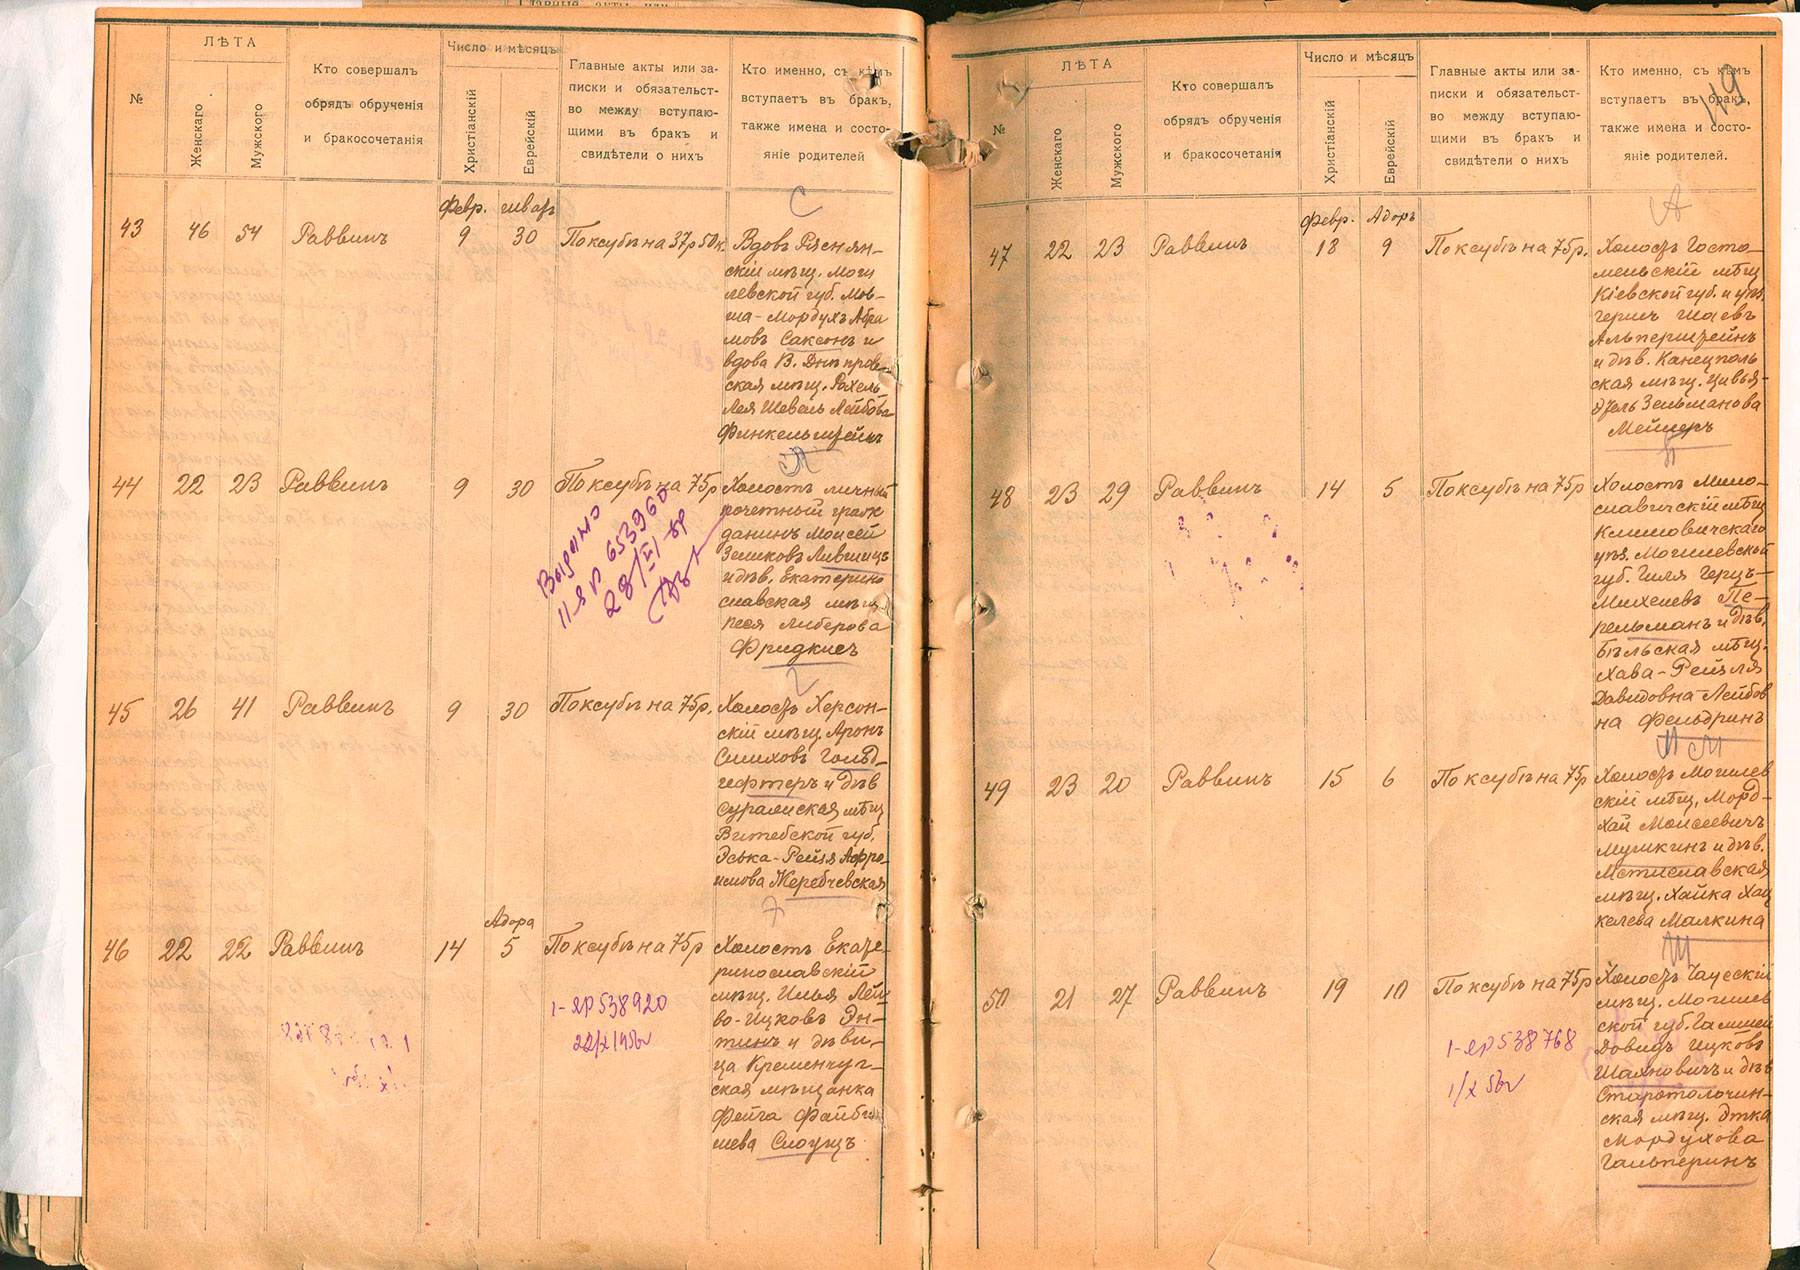 №
ЛѢТА
Женскаго
Мужского
Кто совершалъ
обрядъ обрученія
и бракосочетанія
Число и мѣсяцъ
Христіанскій
Еврейскій
Главные акты или за-
писки и обязательст-
во между вступаю-
щими въ бракъ и
свидѣтели о нихъ
Кто именно, съ кѣмъ
вступаетъ въ бракъ,
также имена и состо-
яніе родителей
Февр.
43 46 54 Раввинъ 9 30 По ксубѣ на 37р 50к.
Вдовъ Ряснян-
скій мѣщ. Моги
левской губ. Мов-
ша-Мордухъ Абра
мовъ Саксонъ и
вдова В. Днѣпров-
ская мѣщ. Рахель
Лея Шевель Лейбова
Финкельштейнъ
44 22 23 Раввинъ 9 30 По ксубѣ на 75р
Холостъ личный
почетный граж
данинъ Моисей
Зеликовъ Лившицъ
и дѣв. Екатерино
славская мѣщ
Песя Либерова
Фридкисъ
Выдано
II-ЯР 653960
45 26 41 Раввинъ 9 30 По ксубѣ на 75р.
Холостъ Херсон-
скій мѣщ. Аронъ
Симховъ Гольд-
гефтеръ и дѣв
Суражская мѣщ
Витебской губ.
Эська-Рейзя Афро-
имова Жеребчевская
Адора
46 22 22 Раввинъ 14 5 По ксубѣ на 75р
Холостъ Екате-
ринославскій
мѣщ. Илья Лей
бо-Ицковъ Эн-
тинъ и дѣви-
ца Кременчуг-
ская мѣщанка
Фейга Файби
шева Слоущъ
1-ЯР 538920
№
ЛѢТА
Женскаго
Мужского
Кто совершалъ
обрядъ обрученія
и бракосочетанія
Число и мѣсяцъ
Христіанскій
Еврейскій
Главные акты или за-
писки и обязательст-
во между вступаю-
щими въ бракъ и
свидѣтели о нихъ
Кто именно, съ кѣмъ
вступаетъ въ бракъ,
также имена и состо-
яніе родителей.
119
Февр. Адоръ
47 22 23 Раввинъ 18 9 По ксубѣ на 75р.
Холостъ Госто-
мельскій мѣщ
Кіевской губ. и уѣз.
Гершъ Шаевъ
Альперштейнъ
и дѣв. Канецполь
ская мѣщ. Цивья-
Этель Зельманова
Мейлеръ
48 23 29 Раввинъ 14 5 По ксубѣ на 75р
Холостъ Мило-
славичскій мѣщ
Климовичскаго
уѣз. Могилевской
губ. Гиля Герцъ-
Михелевъ Пе-
рельманъ и дѣв.
Бѣльская мѣщ.
Хава-Рейзля
Давидовна-Лейбов
на Фельдринъ
49 23 20 Раввинъ 15 6 По ксубѣ на 75р
Холостъ Могилев
скій мѣщ. Морд-
хай Моисеевичъ
Мушкинъ и дѣв.
Мстиславская
мѣщ. Хайка Хац
келева Малкина
50 21 27 Раввинъ 19 10 По ксубѣ на 75р
Холостъ Чаусскій
мѣщ. Могилев
ской губ.
Довидъ Ицковъ
Шахновичъ и дѣв
Старотолочин-
ская мѣщ. Этка
Мордухова
Гальперинъ
1-ЯР 538768